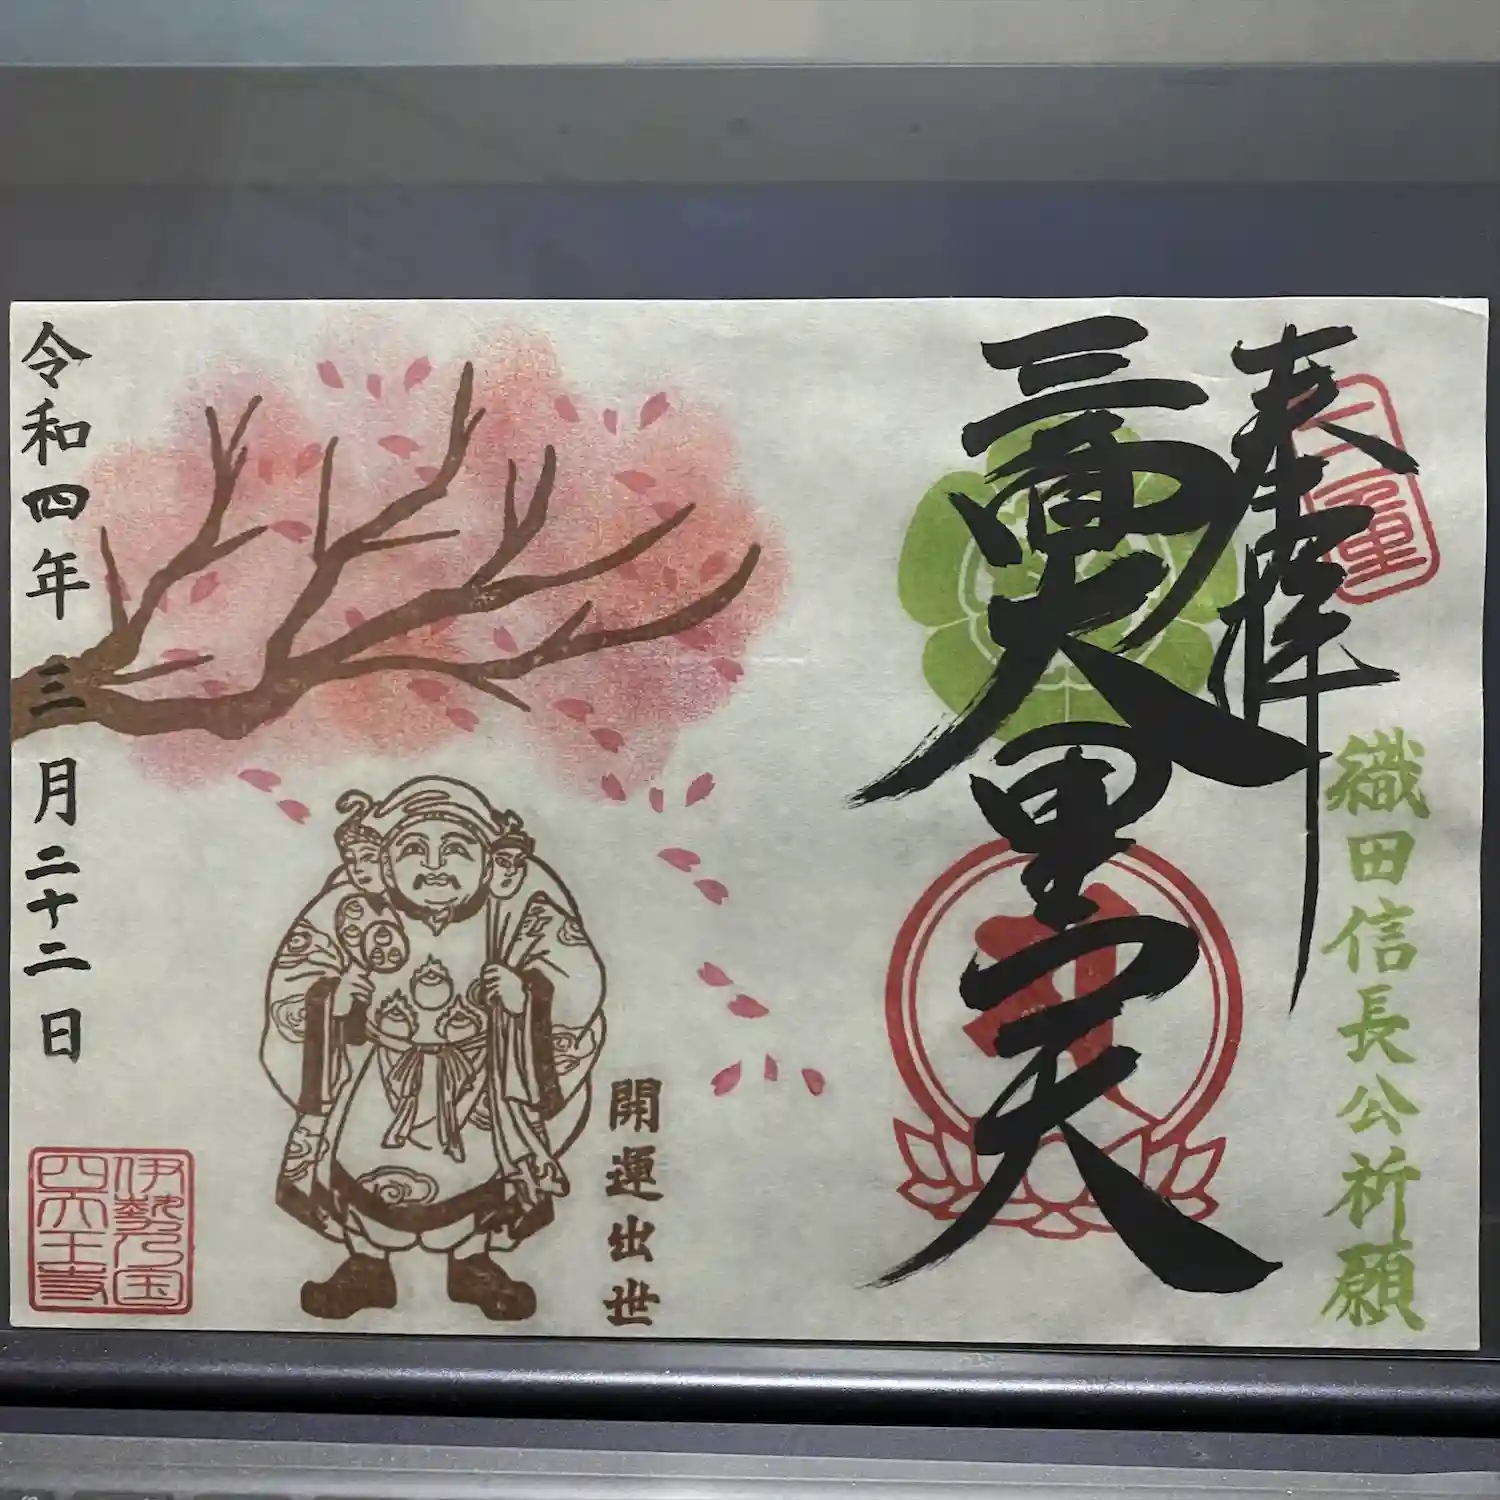 奉拝
三重
織田信長公祈願
三面大黒天
開運出世
伊勢乃国
四天王寺
令和四年三月二十二日